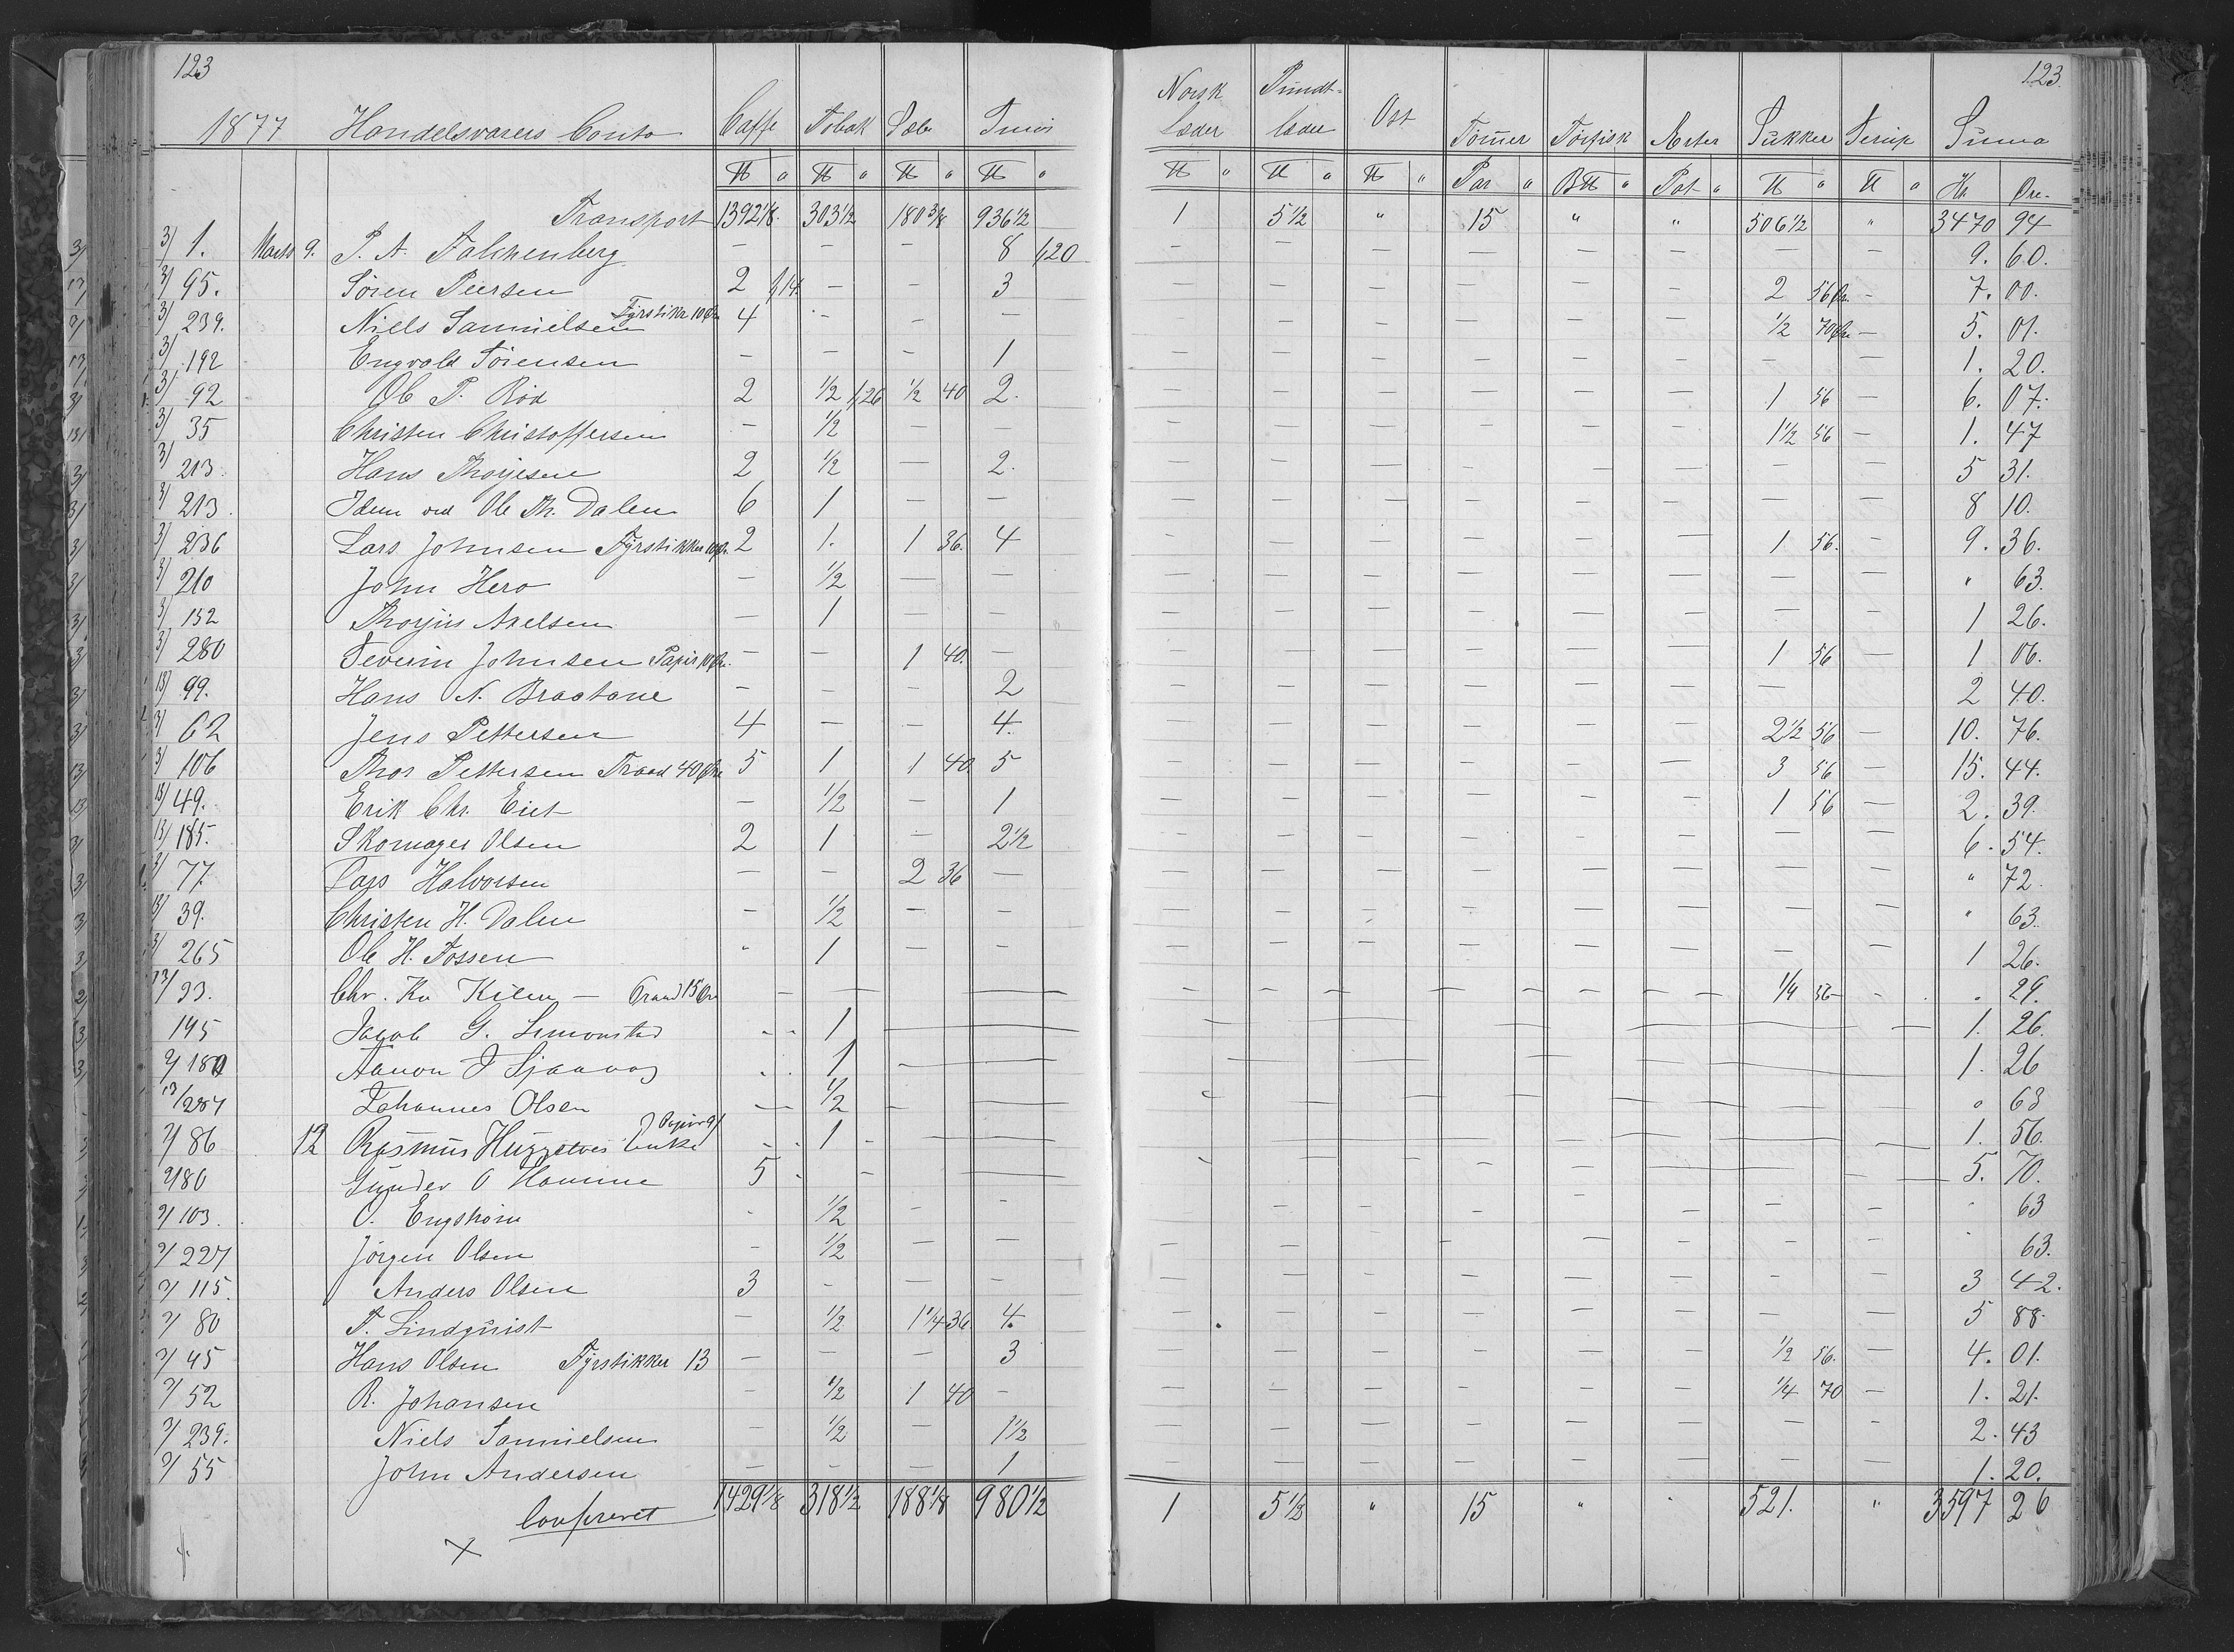 123 123.
1877 Handelsvarers Conto Caffe Tobak Sæbe Smør Norsk Læder Pundt-læder Ost Tømer Tørfisk Erter Sukker Sirup Suma
℔ " ℔ " ℔ " ℔ " ℔ " ℔ " ℔ " Par " B℔ " Pot " ℔ " ℔ " Kr Øre.
Transport 1392 1/8. 303 1/2 180 3/8 936 1/2 1 5 1/2 " 15 " " 506 1/2 " 3470 94
3/ 1. Marts 9. P. A. Falchenberg - - - 8 1,20 - - - - - - - - 9. 60.
3/ 95. Søren Peersen 2 1,14. - - 3 - - - - - - 2 56 Ør. - 7. 00.
3/ 239. Niels Samuelsen Fyrstikr 10 Ør 4 - - - - - - - - - 1/2 70 Ør - 5. 01.
3/ 192 Engvald Sørensen - - - 1 - - - - - - - - 1. 20.
3/ 92 Ole P. Röd 2 1/2 1,26 1/2 40 2. - - - - - - 1 56 - 6. 07.
3/ 35 Christen Christoffersen - 1/2 - - - - - - - - 1 1/2 56 - 1. 47
3/ 213. Hans Thorjesen 2 1/2 - 2. - - - - - - - - 5 31.
3/ 213. Idem ved Ole Th. Dalen 6 1 - - - - - - - - - - 8 10.
3/ 236 Lars Johnsen Fyrstikker 10 Ør. 2 1. 1 36. 4 - - - - - - 1 56. - 9. 36.
3/ 210 John Hero - 1/2 - - - - - - - - - - " 63.
3/ 152 Thorjus Axelsen - 1 - - - - - - - - - - 1 26.
3/ 280 Severin Johnsen Papir 10 Ør. - - 1 40. - - - - - - - 1 56 - 1 06.
13/ 99. Hans N. Braatane - - - 2 - - - - - - - - 2 40.
3/ 62 Jens Pettersen 4 - - 4. - - - - - - 2 1/2 56 - 10. 76.
3/ 106 Thor Pettersen Traad 40 Øre 5 1 1 40. 5 - - - - - - 3 56 - 15. 44.
13/ 49. Erik Chr. Eiet - 1/2 - 1 - - - - - - 1 56 - 2. 39.
13/ 185. Skomager Olsen 2 1 - 2 1/2 - - - - - - - - 6. 54.
3/ 77. Lars Halvorsen - - 2 36 - - - - - - - - - " 72.
13/ 39. Christen H. Dalen - 1/2 - - - - - - - - - - " 63.
3/ 265 Ole H. Fossen - 1 - - - - - - - - - - 1 26.
13/ 93. Chr. Kn Kilen - Traad 15 Øre - - - - - - - - - 1/4 56 - . 29.
195 Jacob G. Simonstad - 1 - - - - - - - - - - 1. 26.
3/ 180 Aanon J Sjaavag - 1 - - - - - - - - - - 1. 26
13/ 284 Johannes Olsen - 1/2 - - - - - - - - - - " 63
3/ 86 12 Rasmus Enke Papir - 1 - - - - - - - - - - 1. 56.
3/ 80 Gunder O Homme 5 - - - - - - - - - - - 5. 70.
3/ 103. O. Engstrøm - 1/2 - - - - - - - - - - " 63
3/ 227 Jørgen Olsen - 1/2 - - - - - - - - - - " 63.
3/ 115. Anders Olsen 3 - - - - - - - - - - - 3 42.
3/ 80 F. Lindquist - 1/2 1 1/4 36. 4. - - - - - - - - 5 88.
3/ 45 Hans Olsen Fyrstikker 13 - - - 3 - - - - - - 1/2 56. - 4. 01.
3/ 52 R. Johansen - 1/2 1 40 - - - - - - - 1/4 70 - 1. 21.
3/ 239. Niels Samuelsen - 1/2 - 1 1/2 - - - - - - - - 2. 43
3/ 55 John Andersen - - - 1 - - - - - - - - 1. 20.
Confereret 1429 1/8 318 1/2 188 1/8 980 1/2 1 5 1/2 " 15 " " 521. " 3597 26
X